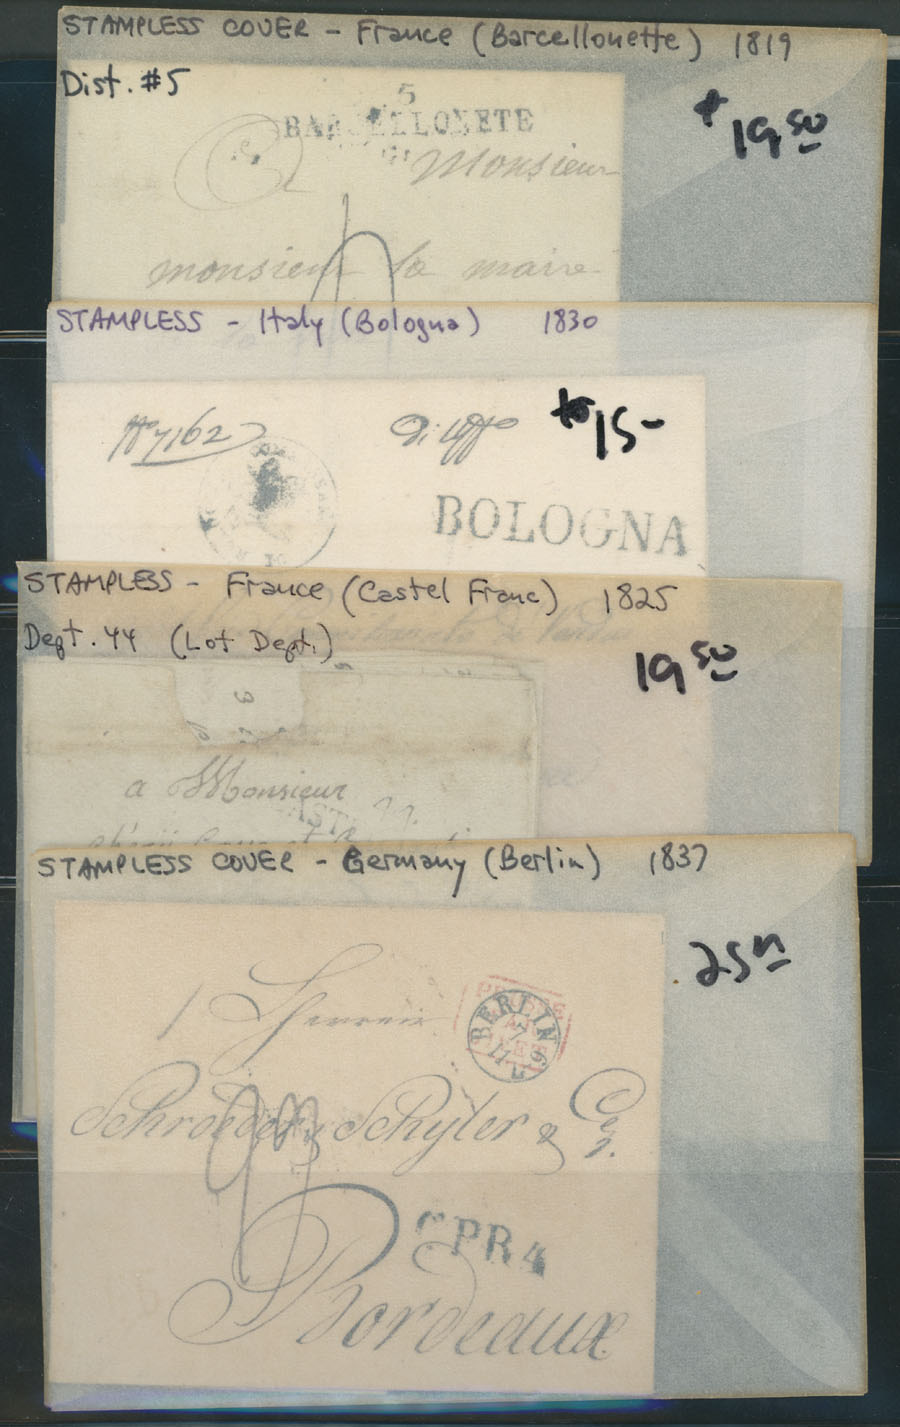 STAMPLESS COVER - France (Barcellouette) 1819
Dist. #5
19 50
5
BARCELLONETE
Monsieur
monsieur le maire
STAMPLESS - Italy (Bologna) 1830
to 15-
No 7162
BOLOGNA
STAMPLESS - France (Castel Franc) 1825
Dept. 44 (Lot Dept.)
19 50
a Monsieur
STAMPLESS COVER - Germany (Berlin) 1837
25
BERLIN
Herren
Schroeder, Schyler & Co.
CPR4
Bordeaux